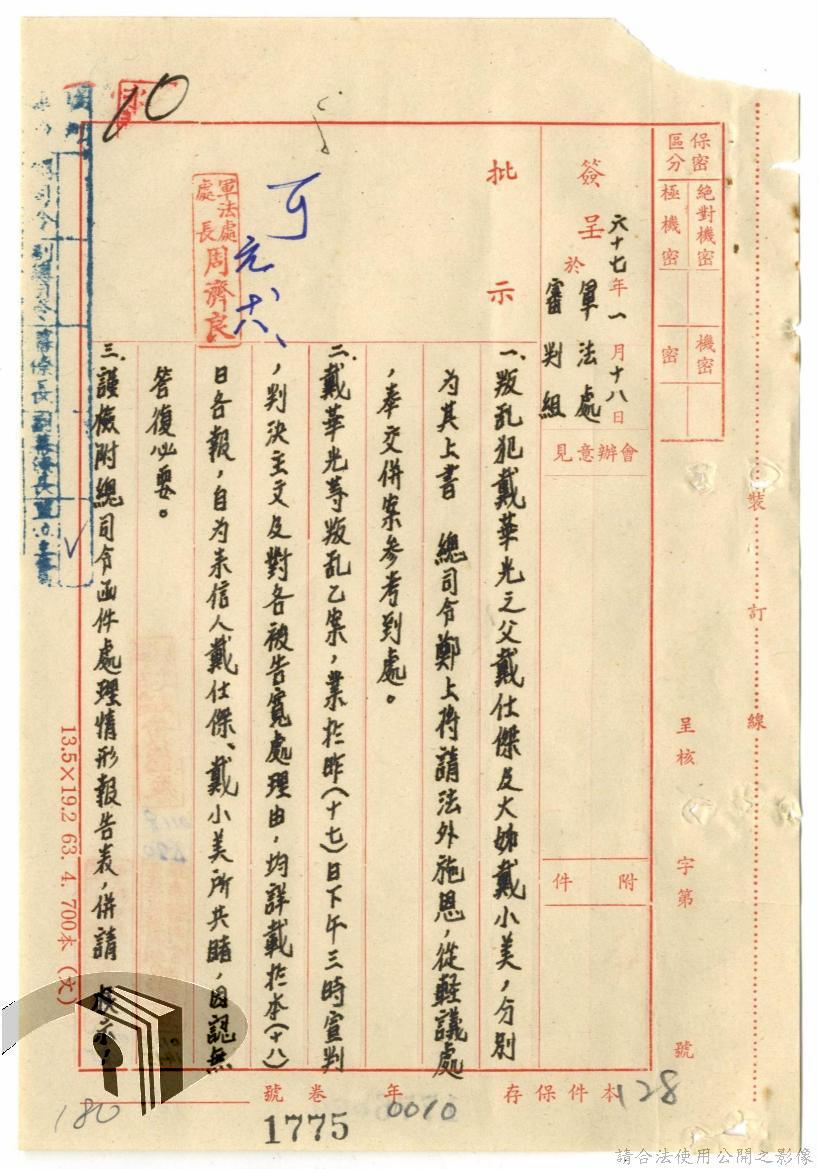 保密區分
絕對機密
極機密
機密
密
裝訂線
呈核 字第 號
會辦意見
附件
簽呈 六十七年一月十八日
於 軍法處
審判組
批示
一、叛乱犯戴華光之父戴仕傑及大姊戴小美，分別
為其上書 總司令鄭上將請法外施恩，從輕議處
，奉交併案參考到處。
二、戴華光等叛乱乙案，業於昨(十七)日下午三時宣判
，判決主文及對各被告寬處理由，均詳載於本(十八)
日各報，自为来信人戴仕傑、戴小美所共睹，因認無
答復必要。
三、謹檢附總司令函件處理情形報告表，併請 核示！
可
軍法處處長周濟良
10
13.5×19.2 63. 4. 700本 (文)
本件保存 年 卷 號
128
0010
1775
180
請合法使用公開之影像